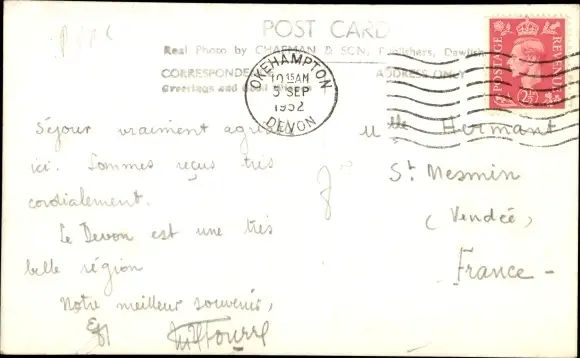 POST CARD
Real Photo by CHAPMAN & SON, Publishers, Dawlish
CORRESPONDENCE
ADDRESS ONLY
Greetings and
OKEHAMPTON
10 15 AM
5 SEP
1952
DEVON
POSTAGE
REVENUE
2½D
Séjour vraiment
ici. Sommes reçus très
cordialement.
Le Devon est une très
belle région
Notre meilleur souvenir,
Mlle Hermant
St Mesmin
(Vendée)
France -